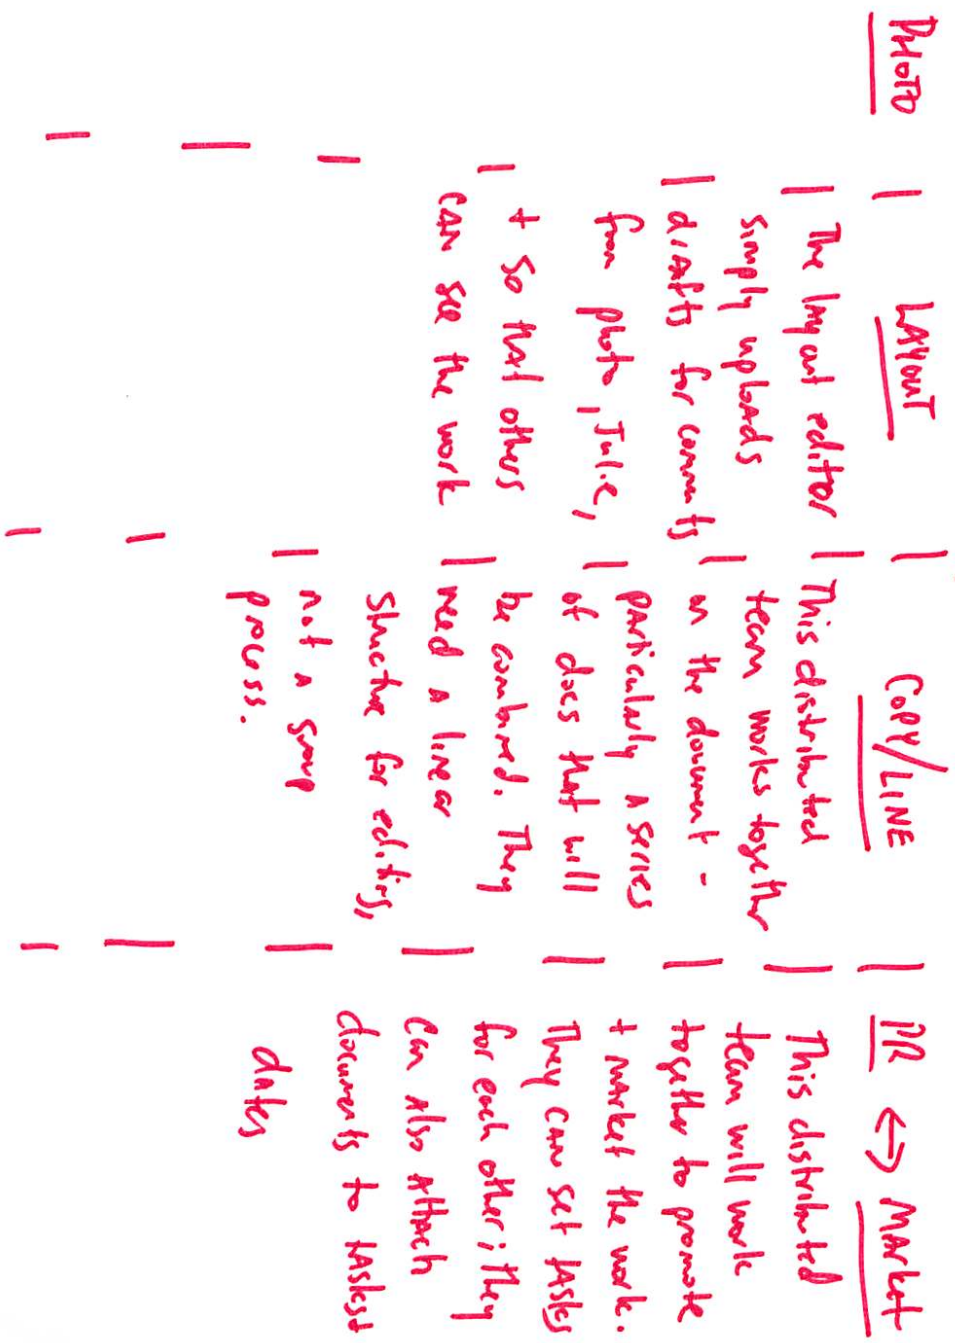 PHOTO
LAYOUT
The layout editor
simply uploads
drafts for comments
from photo, Julie,
+ so that others
can see the work
COPY/LINE
This distributed
team works together
on the document -
particularly a series
of docs that will
be combined. They
need a linear
structure for editing,
not a group
process.
PR ↔ Market
This distributed
team will work
together to promote
+ market the work.
They can set tasks
for each other; they
can also attach
documents to tasks +
dates